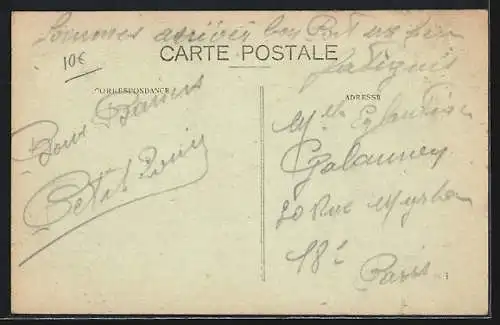 Sommes arriver bon Port un peu
fatigués
10€
CARTE POSTALE
CORRESPONDANCE
ADRESSE
Bons Baisers
Petit Louis
Mlle Eglantine
Galanney
20 Rue Myrha
18e
Paris